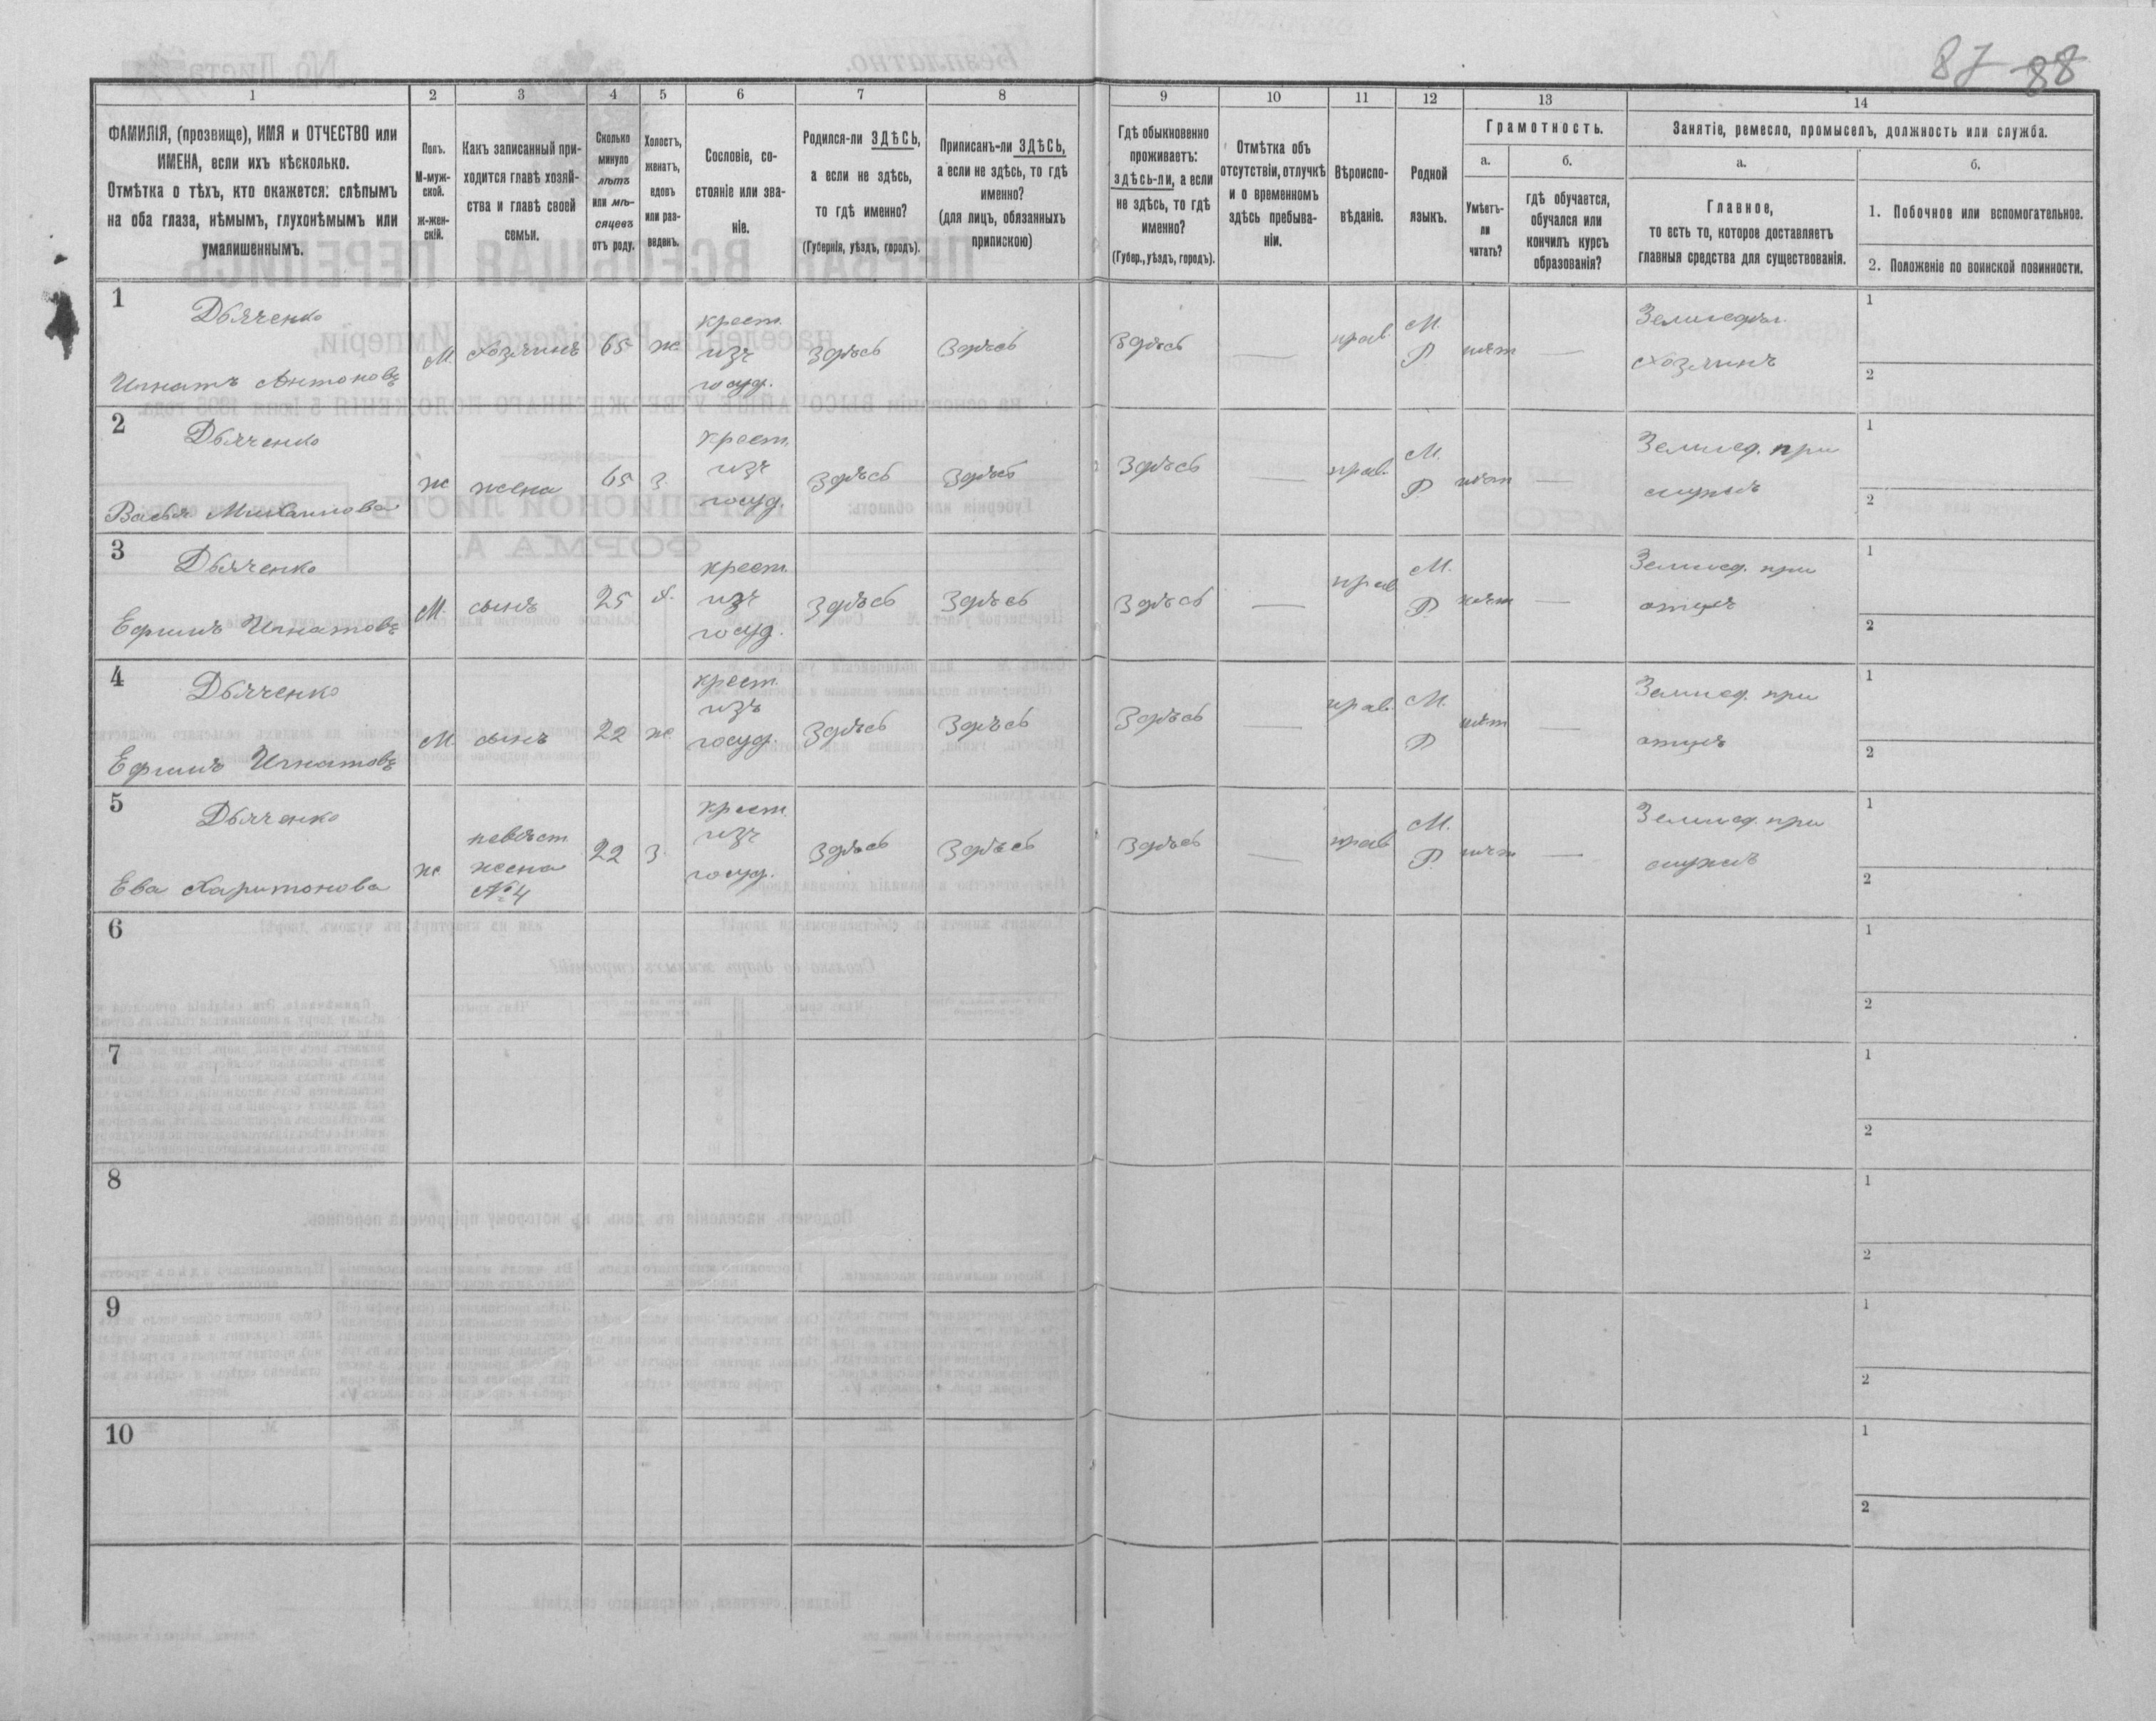 87 88
1 2 3 4 5 6 7 8 9 10 11 12 13 14
ФАМИЛІЯ, (прозвище), ИМЯ и ОТЧЕСТВО или
ИМЕНА, если ихъ нѣсколько.
Отмѣтка о тѣхъ, кто окажется: слѣпымъ
на оба глаза, нѣмымъ, глухонѣмымъ или
умалишеннымъ.
Полъ.
М-муж-
ской.
ж-жен-
скій.
Какъ записанный при-
ходится главѣ хозяй-
ства и главѣ своей
семьи.
Сколько
минуло
лѣтъ
или мѣ-
сяцевъ
отъ роду.
Холостъ,
женатъ,
вдовъ
или раз-
веденъ.
Сословіе, со-
стояніе или зва-
ніе.
Родился-ли ЗДѢСЬ,
а если не здѣсь,
то гдѣ именно?
(Губернія, уѣздъ, городъ).
Приписанъ-ли ЗДѢСЬ,
а если не здѣсь, то гдѣ
именно?
(для лицъ, обязанныхъ
припискою)
Гдѣ обыкновенно
проживаетъ:
здѣсь-ли, а если
не здѣсь, то гдѣ
именно?
(Губер., уѣздъ, городъ).
Отмѣтка объ
отсутствіи, отлучкѣ
и о временномъ
здѣсь пребыва-
ніи.
Вѣроиспо-
вѣданіе.
Родной
языкъ.
Грамотность.
а.
Умѣетъ-
ли
читать?
б.
гдѣ обучается,
обучался или
кончилъ курсъ
образованія?
Занятіе, ремесло, промыселъ, должность или служба.
а.
Главное,
то есть то, которое доставляетъ
главныя средства для существованія.
б.
1. Побочное или вспомогательное.
2. Положеніе по воинской повинности.
1
Дьяченко
Игнатъ Антоновъ
М. хозяинъ 65 ж.
крест.
изъ
госуд.
здѣсь здѣсь здѣсь — прав.
М.
Р
нѣт —
Земледѣл.
хозяинъ
1
2
2
Дьяченко
Михайлова
ж жена 65 з.
крест.
изъ
госуд.
здѣсь здѣсь здѣсь — прав.
М.
Р
нѣт —
Землед. при
мужѣ
1
2
3
Дьяченко
Ефимъ Игнатовъ
М. сынъ 25 х.
крест.
изъ
госуд.
здѣсь здѣсь здѣсь — прав
М.
Р.
нѣт —
Землед. при
отцѣ
1
2
4
Дьяченко
Ефимъ Игнатовъ
М. сынъ 22 ж.
крест.
изъ
госуд.
здѣсь здѣсь здѣсь — прав.
М.
Р
нѣт —
Землед. при
отцѣ
1
2
5
Дьяченко
Ева Харитонова
ж
невѣст.
жена
№4
22 з.
крест.
изъ
госуд.
здѣсь здѣсь здѣсь — прав
М.
Р
нѣт —
Землед. при
мужѣ
1
2
6
1
2
7
1
2
8
1
2
9
1
2
10
1
2